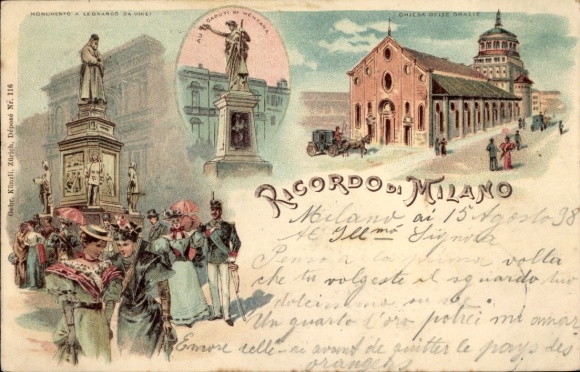 MONUMENTO A LEONARDO DA VINCI
AI CADUTI DI MENTANA
CHIESA DELLE GRAZIE
Gebr. Künzli, Zürich, Déposé Nr. 116
RICORDO DI MILANO
Milano ai 15 Agosto 98
Al Illmo Signora
Pensa la prima volta
che tu volgeste il sguardo tuo
dolcissimo su
Un quarto d'oro potrei me amar
Emore celle-ai avant de quitter le pays des
orangers